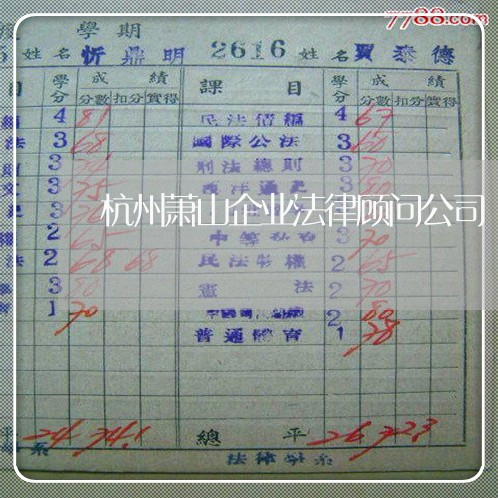 7788.com
學期
姓名 忻鼎明 2616 姓名 賈泰德
目 學分 成績 課目 學分 成績
分數 扣分 實得 分數 扣分 實得
4 81 民法債編 4 67
法 3 68 國際公法 3 60
3 刑法總則 3 70
文 3 75 西洋通史 3 80
3 70
杭州萧山企业法律顾问公司
權 2 65 3 70
法 2 68 68 民法物權 2 65
3 80 憲法 2 70
1 70 2 80
普通體育 1 78
平 24 74.1 總平 26 72.3
系 法律學系